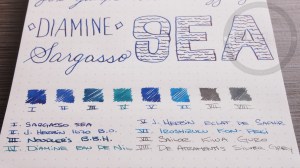 DIAMINE
Sargasso
SEA
I II III IV V VI VII VIII
I. SARGASSO SEA
II. J. HERBIN 1670 B.O.
III. NOODLER'S B.S.B.
IV. DIAMINE EAU DE NIL
V. J. HERBIN ECLAT DE SAPHIR
VI. IROSHIZUKU KON-PEKI
VII. SAILOR KIWA GURO
VIII. DE ATRAMENTIS SILVER GREY